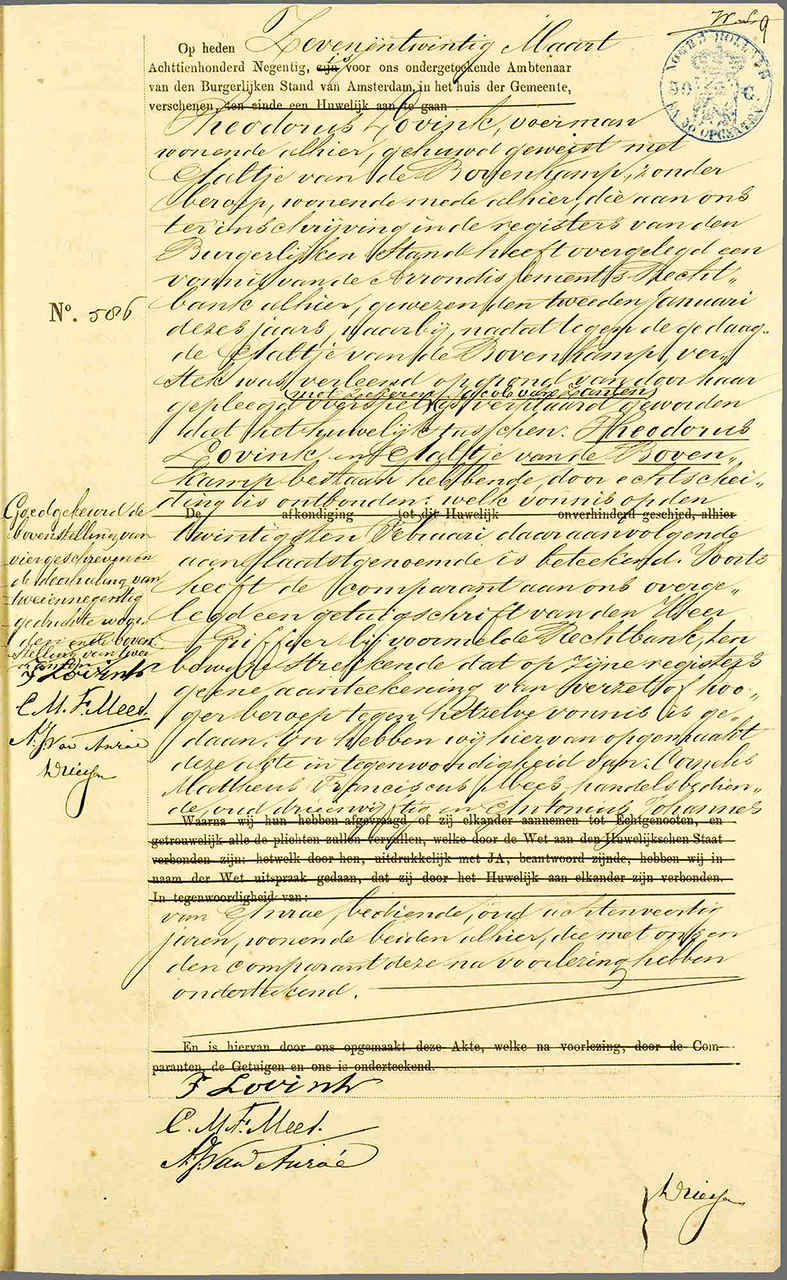 9
NOORD HOLLAND
50 C.
EN 30 OPCENTEN
Op heden Zevenëntwintig Maart
Achttienhonderd Negentig, zijn is voor ons ondergeteekende Ambtenaar
van den Burgerlijken Stand van Amsterdam, in het huis der Gemeente,
verschenen, ten einde een Huwelijk aan te gaan
Theodorus Lovink, voerman
wonende alhier, gehuwd geweest met
Aaltje van de Bovenkamp, zonder
beroep, wonende mede alhier, die aan ons
ter inschrijving in de registers van den
Burgerlijken Stand heeft overgelegd een
vonnis van de Arrondissements Recht„
bank alhier, gewezen den tweeden Januari
dezes jaars, waarbij, nadat tegen de gedaag„
de Aaltje van de Bovenkamp, ver„
stek was verleend op grond van door haar
(met zekeren Jacob van Zanten)
gepleegd overspel is verklaard geworden
dat het huwelijk tusschen: Theodorus
Lovink en Aaltje van de Boven„
kamp bestaan hebbende, door echtschei„
ding is ontbonden: welk vonnis op den
De afkondiging tot dit Huwelijk onverhinderd geschied, alhier
twintigsten Februari daaraanvolgende
aan laatstgenoemde is beteekend. Voorts
heeft de comparant aan ons overge„
legd een getuigschrift van den Heer
Griffier bij voormelde Rechtbank, ten
bewijze strekkende dat op zijne registers
geene aanteekening van verzet of hoo„
ger beroep tegen hetzelve vonnis is ge„
daan. En hebben wij hiervan opgemaakt
deze akte in tegenwoordigheid van: Cornelis
Mattheus Franciscus Mees, handelsbedien„
de, oud drieenvijftig en Antonius Johannes
Waarna wij hun hebben afgevraagd of zij elkander aannemen tot Echtgenooten, en
getrouwelijk alle de plichten zullen vervullen, welke door de Wet aan den Huwelijkschen Staat
verbonden zijn: hetwelk door hen, uitdrukkelijk met JA, beantwoord zijnde, hebben wij in
naam der Wet uitspraak gedaan, dat zij door het Huwelijk aan elkander zijn verbonden.
In tegenwoordigheid van:
van Anrae, bediende, oud achtenveertig
jaren, wonende beiden alhier, die met ons en
den comparant deze na voorlezing hebben
onderteekend.
En is hiervan door ons opgemaakt deze Akte, welke na voorlezing, door de Com-
paranten, de Getuigen en ons is onderteekend.
T Lovink
C. M. F. Mees.
A. J. van Anraé
No. 586
Goedgekeurd de
bovenstelling van
vier geschreven en
de doorhaling van
tweeënnegentig
gedrukte woor„
den en de boven„
stelling van twee
T Lovink
C. M. F. Mees.
A. J. van Anraé